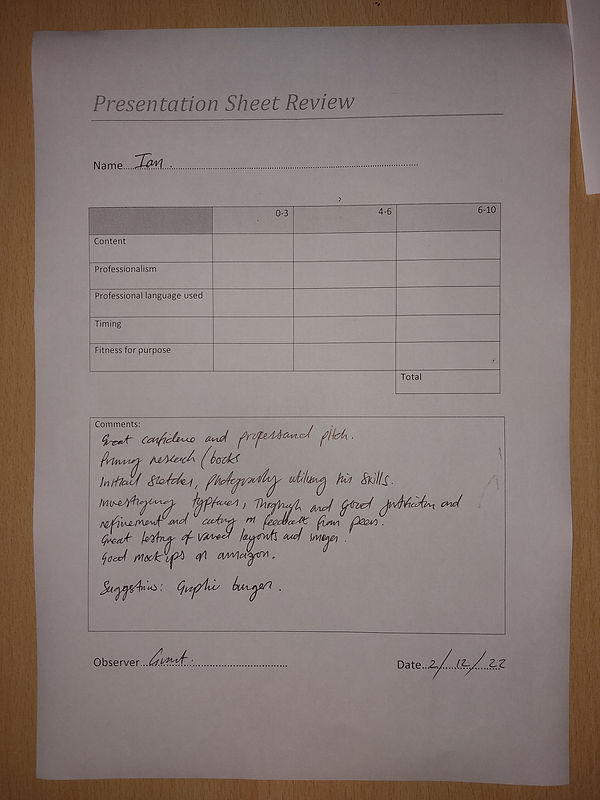 Presentation Sheet Review
Name Ian.
0-3 4-6 6-10
Content
Professionalism
Professional language used
Timing
Fitness for purpose
Total
Comments:
Great confidence and professional pitch.
Primary research (books
Initial sketches, photography utilising his skills.
Investigating typfaces, Through and good justification and
refinement and acting on feedback from peers.
Great testing of varied layouts and images.
Good mock ups on amazon.
Suggestions: Graphic burger.
Observer Grant.
Date 2/12/22